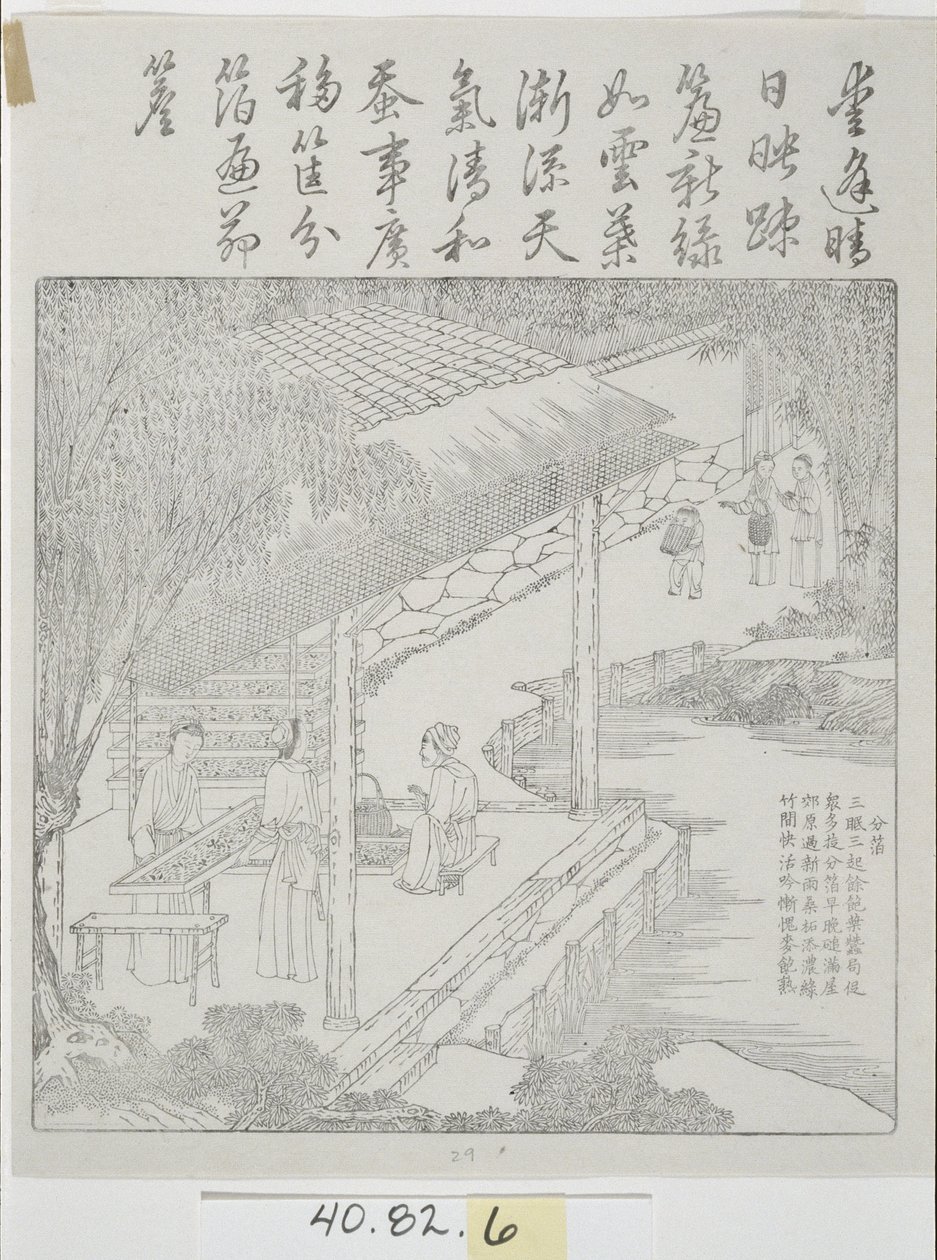 愛逢晴
日映疎
簾新綠
如雲葉
漸添天
氣清和
蚕事廣
移筐分
箔遍茅
簷
分箔
三眠三起餘飽葉蠶局促
衆多旋分箔早晚磓滿屋
郊原過新雨桑柘添濃綠
竹間快活吟慚愧麥飽熟
29
40.82.6